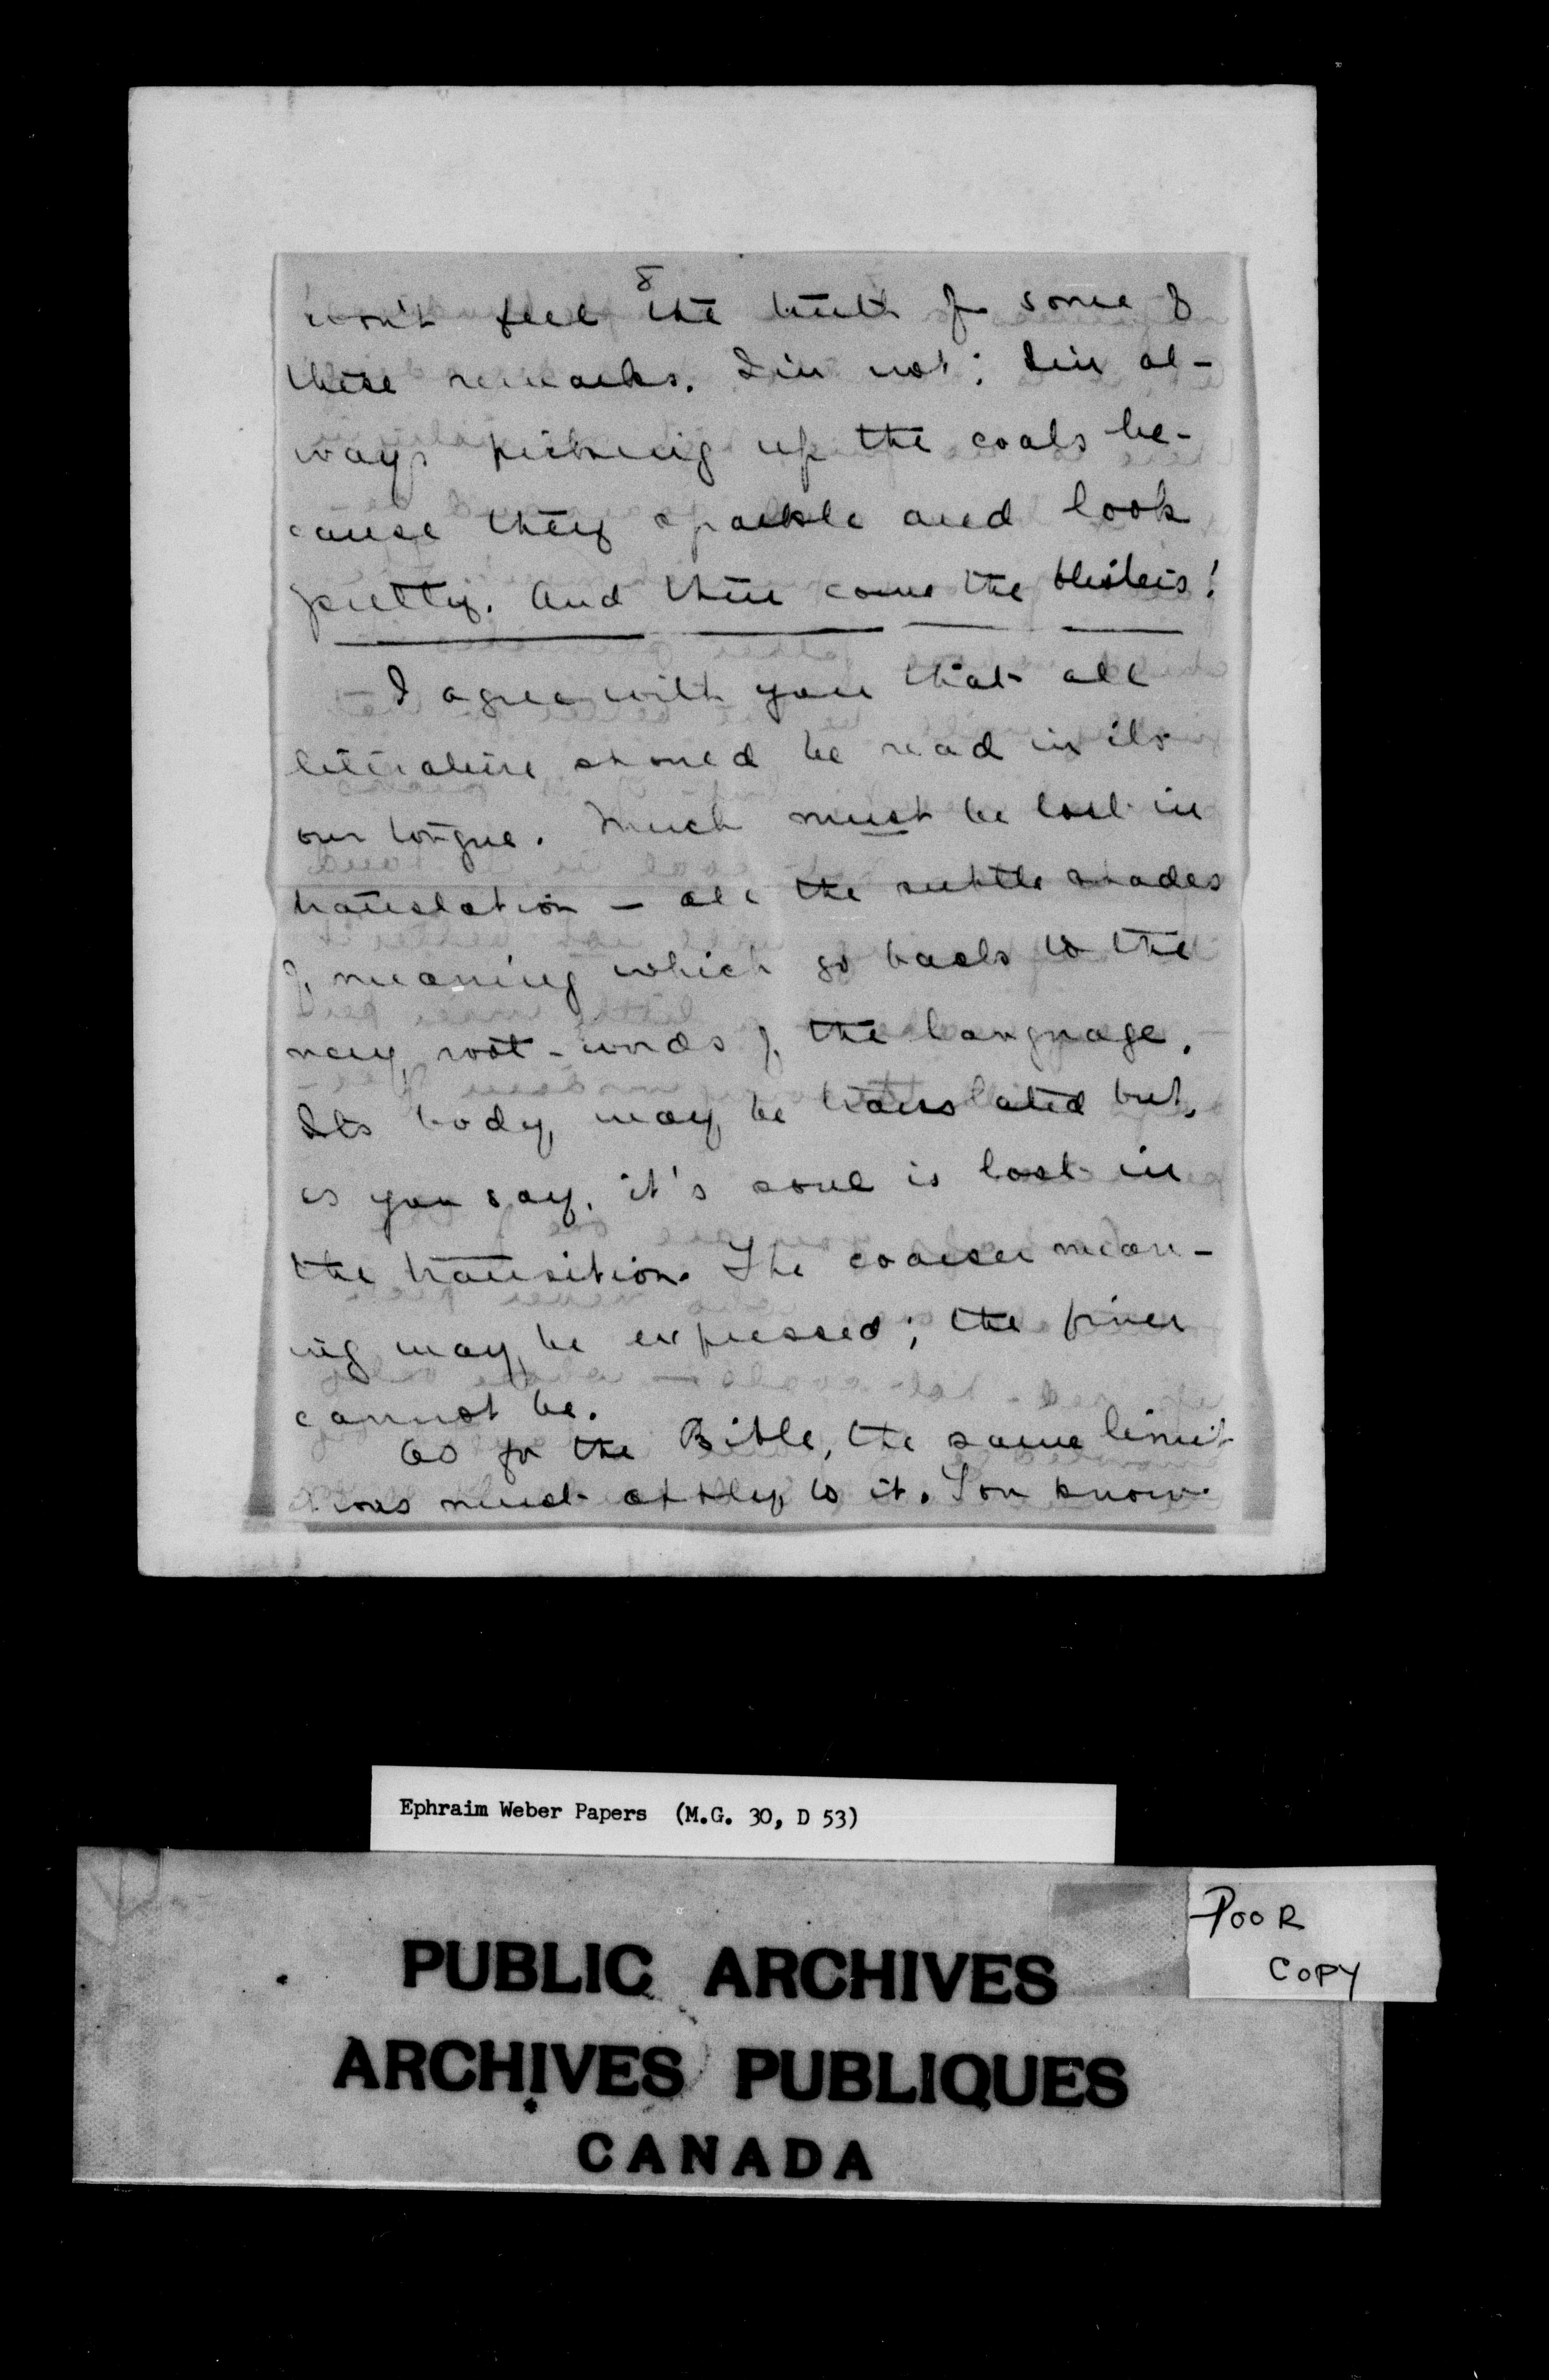 8
won't feel the truth of some of
these remarks. I'm not; I'm al-
ways picking up the coals be-
cause they sparkle and look
pretty. And then come the blisters!
I agree with you that all
literature should be read in its
own tongue. Much must be lost in
translation – all the subtle shades
of meaning which go back to the
very root-words of the language.
Its body may be translated but,
as you say, it's soul is lost in
the transition. The coarser mean-
ing may be expressed; the finer
cannot be.
As for the Bible, the same limit
tions must apply to it. You know
Ephraim Weber Papers (M.G. 30, D 53)
POOR
COPY
PUBLIC ARCHIVES
ARCHIVES PUBLIQUES
CANADA